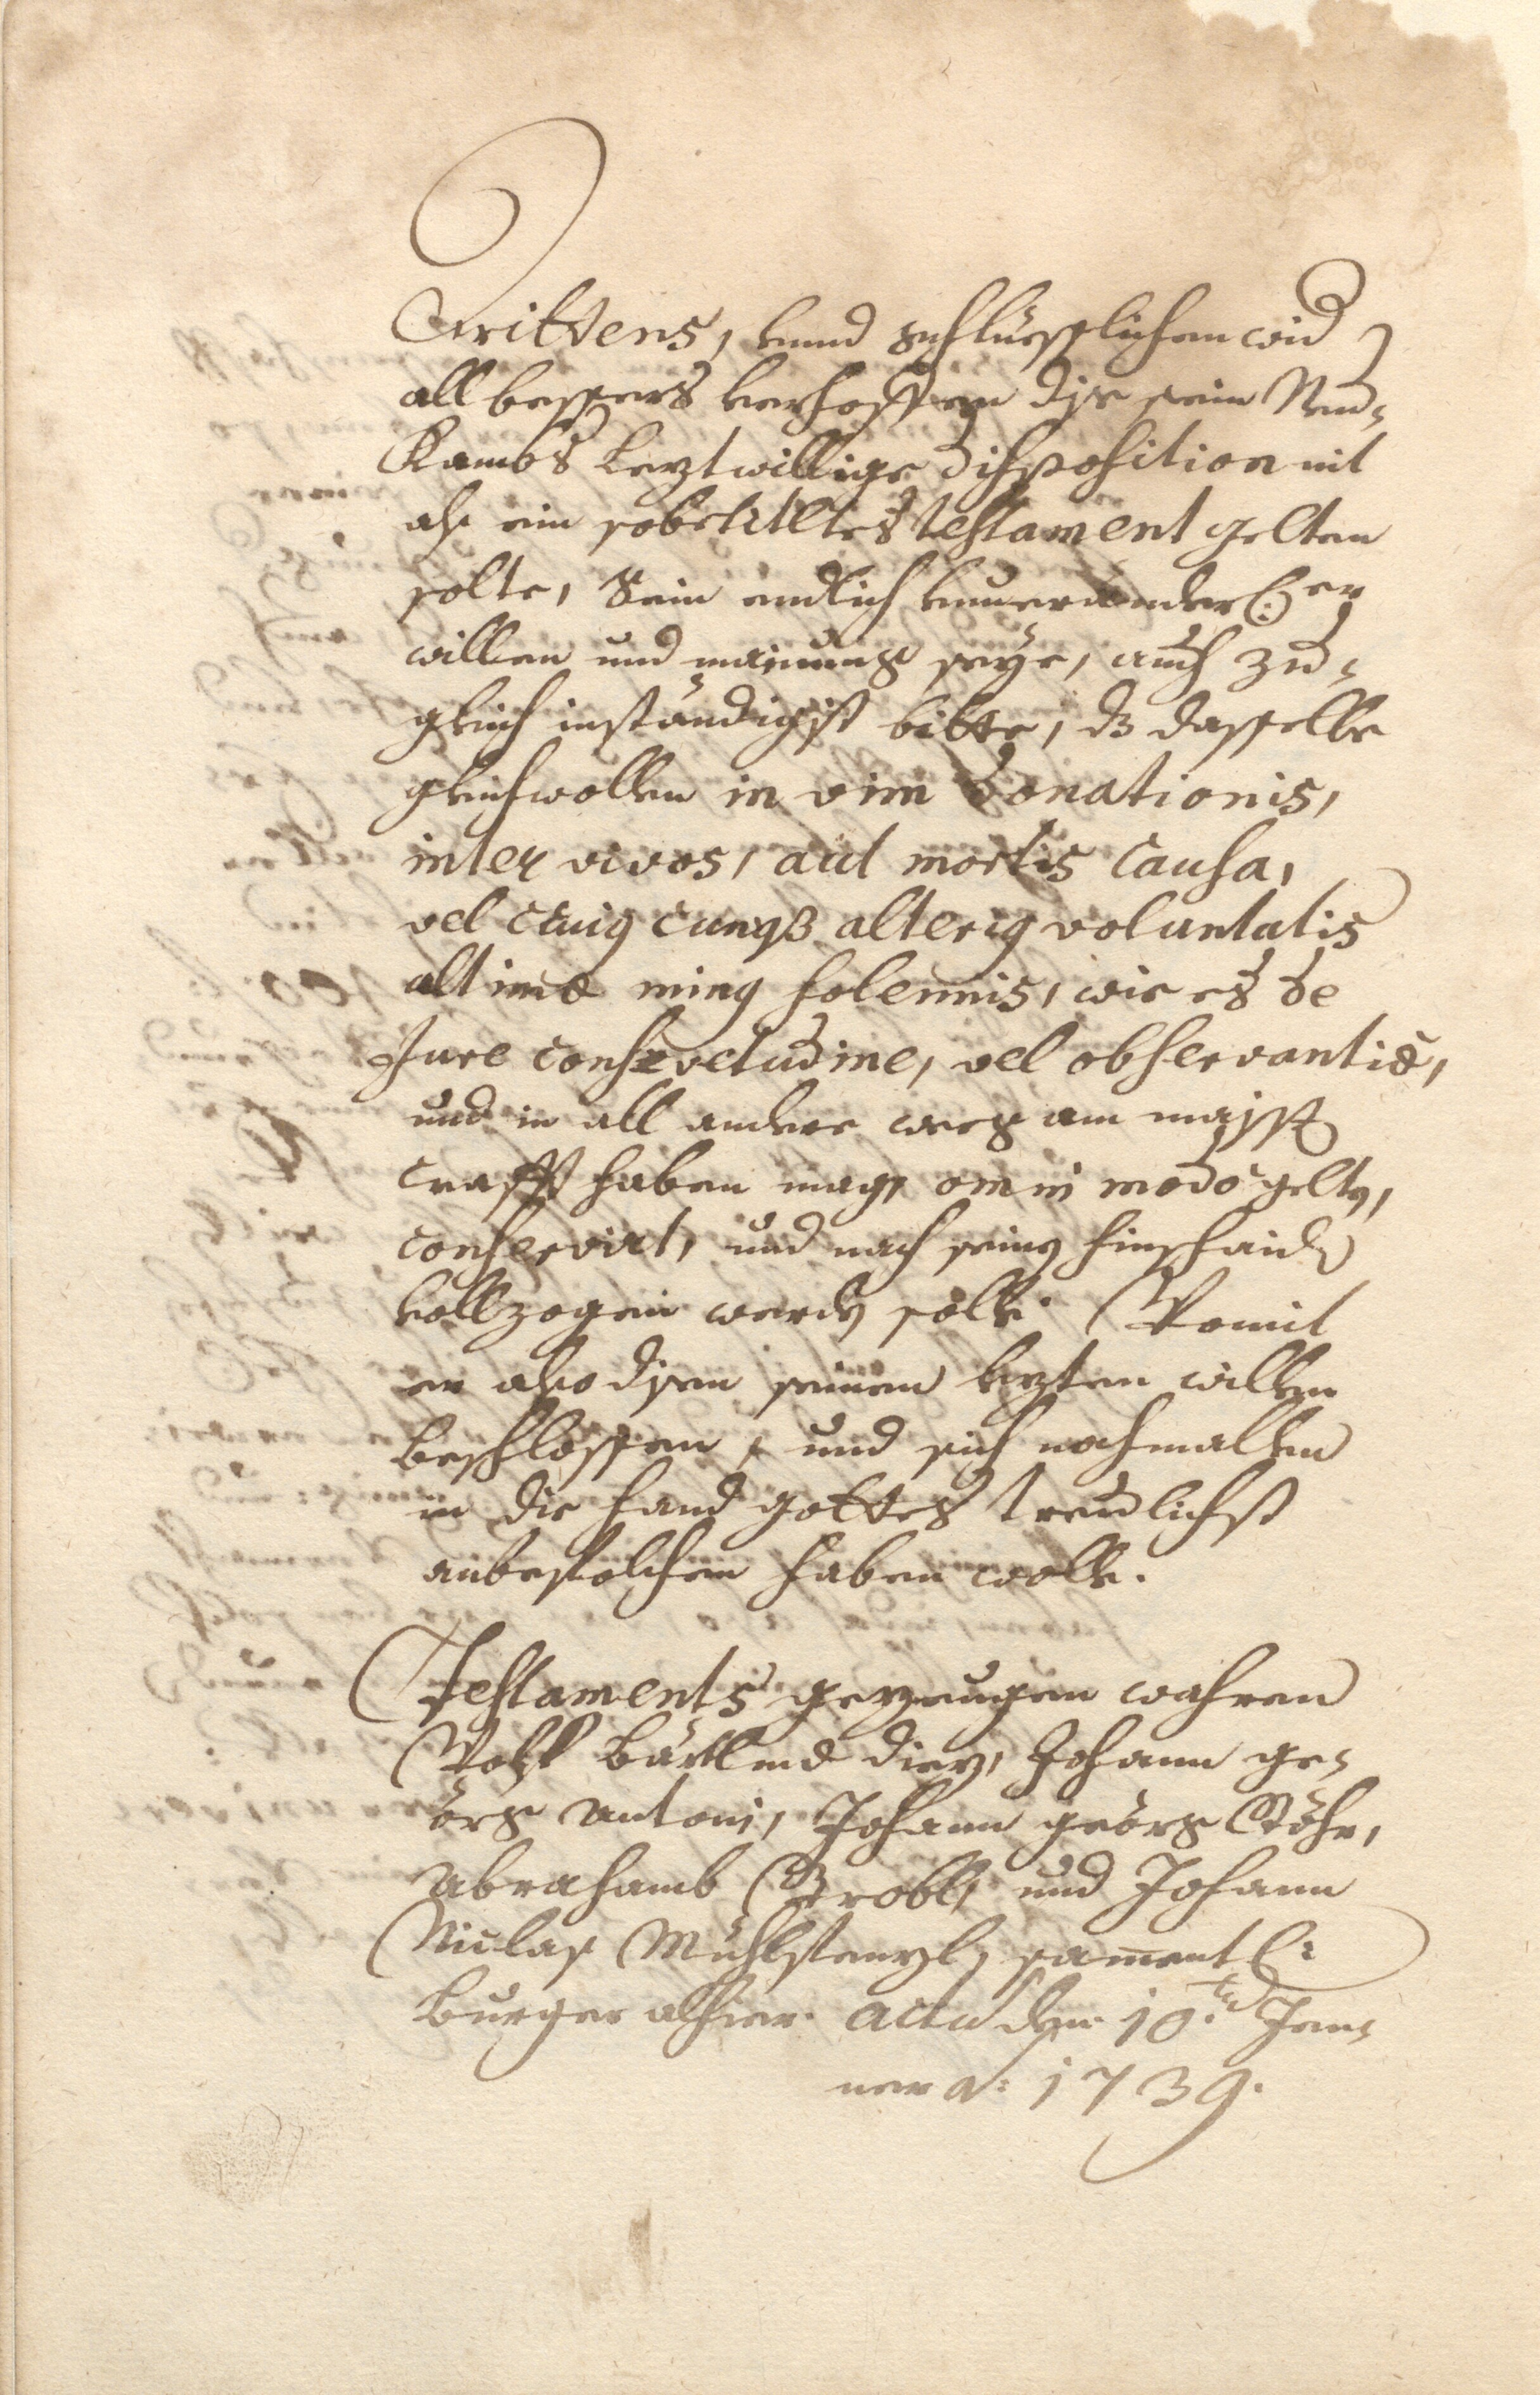 Drittens, unnd schlüesslichen wid
all bessers verhoffen dise sein Neu-
Kambs lezt willige disposition nit
als ein solches testament gelten
solte, Sein endlich unverender(l:)er
willen und mainung seye, auch zu-
gleich inständigist bitte, dz dasselbe
gleichwollen in vim donationis,
inter vivos, aut mortis causa,
vel cuiq cunqz alteriq voluntatis
ultimæ minq solennis, wie es de
Jure consvetudine, vel observantiæ,
und in all andere weeg am maisst
crafft haben mag, omni modo gelten,
conservirt, und nach seinen hinschaiden
vollzogen werden solle. Womit
er also disen seinen lezten willen
beschlossen, und sich nochmallen
in die hand gottes treulichst
anbefolchen haben wolle.
Testaments gezeugen wahren
Wolf Bärtlmæ Diez, Johann ge-
örg Antoni, Johann georg Stöhr,
Abrahamb Grobl, und Johann
Niclas Mühlstenzl, sament(l:)
Burger alhier. Actu den 10.ten Jen-
ner a: 1739.